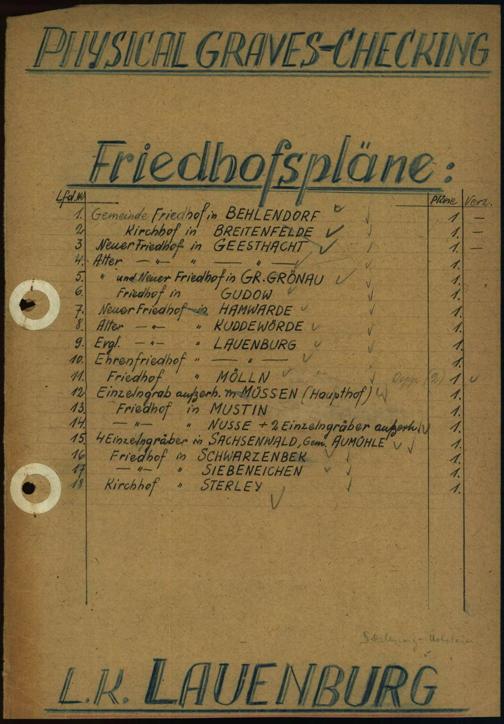 PHYSICAL GRAVES-CHECKING
Friedhofspläne:
Lfd.Nr. Pläne Verz.
1. Gemeinde Friedhof in BEHLENDORF 1 —
2. Kirchhof in BREITENFELDE 1. —
3. Neuer Friedhof in GEESTHACHT 1. —
4. Alter —"— " —"— 1.
5. " und Neuer Friedhof in GR. GRÖNAU 1.
6. Friedhof in GUDOW 1.
7. Neuer Friedhof in HAMWARDE 1.
8. Alter —"— " KUDDEWÖRDE 1.
9. Ergl. —"— " LAUENBURG 1.
10. Ehrenfriedhof " —"— 1.
11. Friedhof " MÖLLN (2) 1.
12. Einzelgrab außerh. in MÜSSEN (Haupthof) 1.
13. Friedhof in MUSTIN 1.
14. —"— " NUSSE + 2 Einzelgräber außerh. 1.
15. 4 Einzelgräber in SACHSENWALD, Gem. AUMÜHLE 1.
16. Friedhof in SCHWARZENBEK 1.
17. —"— " SIEBENEICHEN 1.
18. Kirchhof " STERLEY 1.
L.K. LAUENBURG